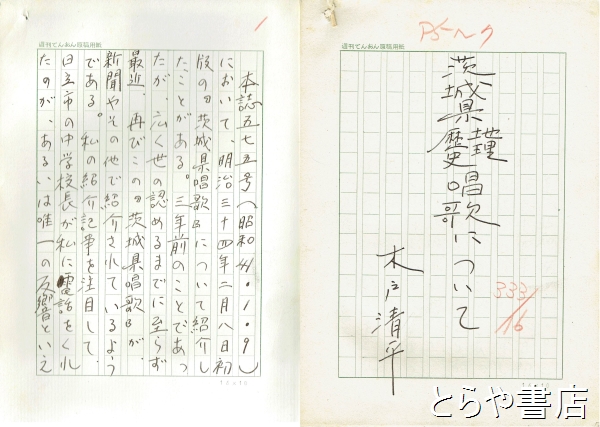 1
週刊てんおん原稿用紙
本誌五七五号(昭和41・1・9)
において、明治三十四年二月八日初
版の『茨城県唱歌』について紹介し
たことがある。三年前のことであっ
たが、広く世の認めるまでに至らず
最近、再びこの『茨城県唱歌』が、
新聞やその他で紹介されているよう
である。私の紹介記事を注目して、
日立市の中学校長が私に電話をくれ
たのが、あるいは唯一の反響といえ
P5〜7
週刊てんおん原稿用紙
茨城県地理歴史唱歌について
木戸清平
333/16
とらや書店